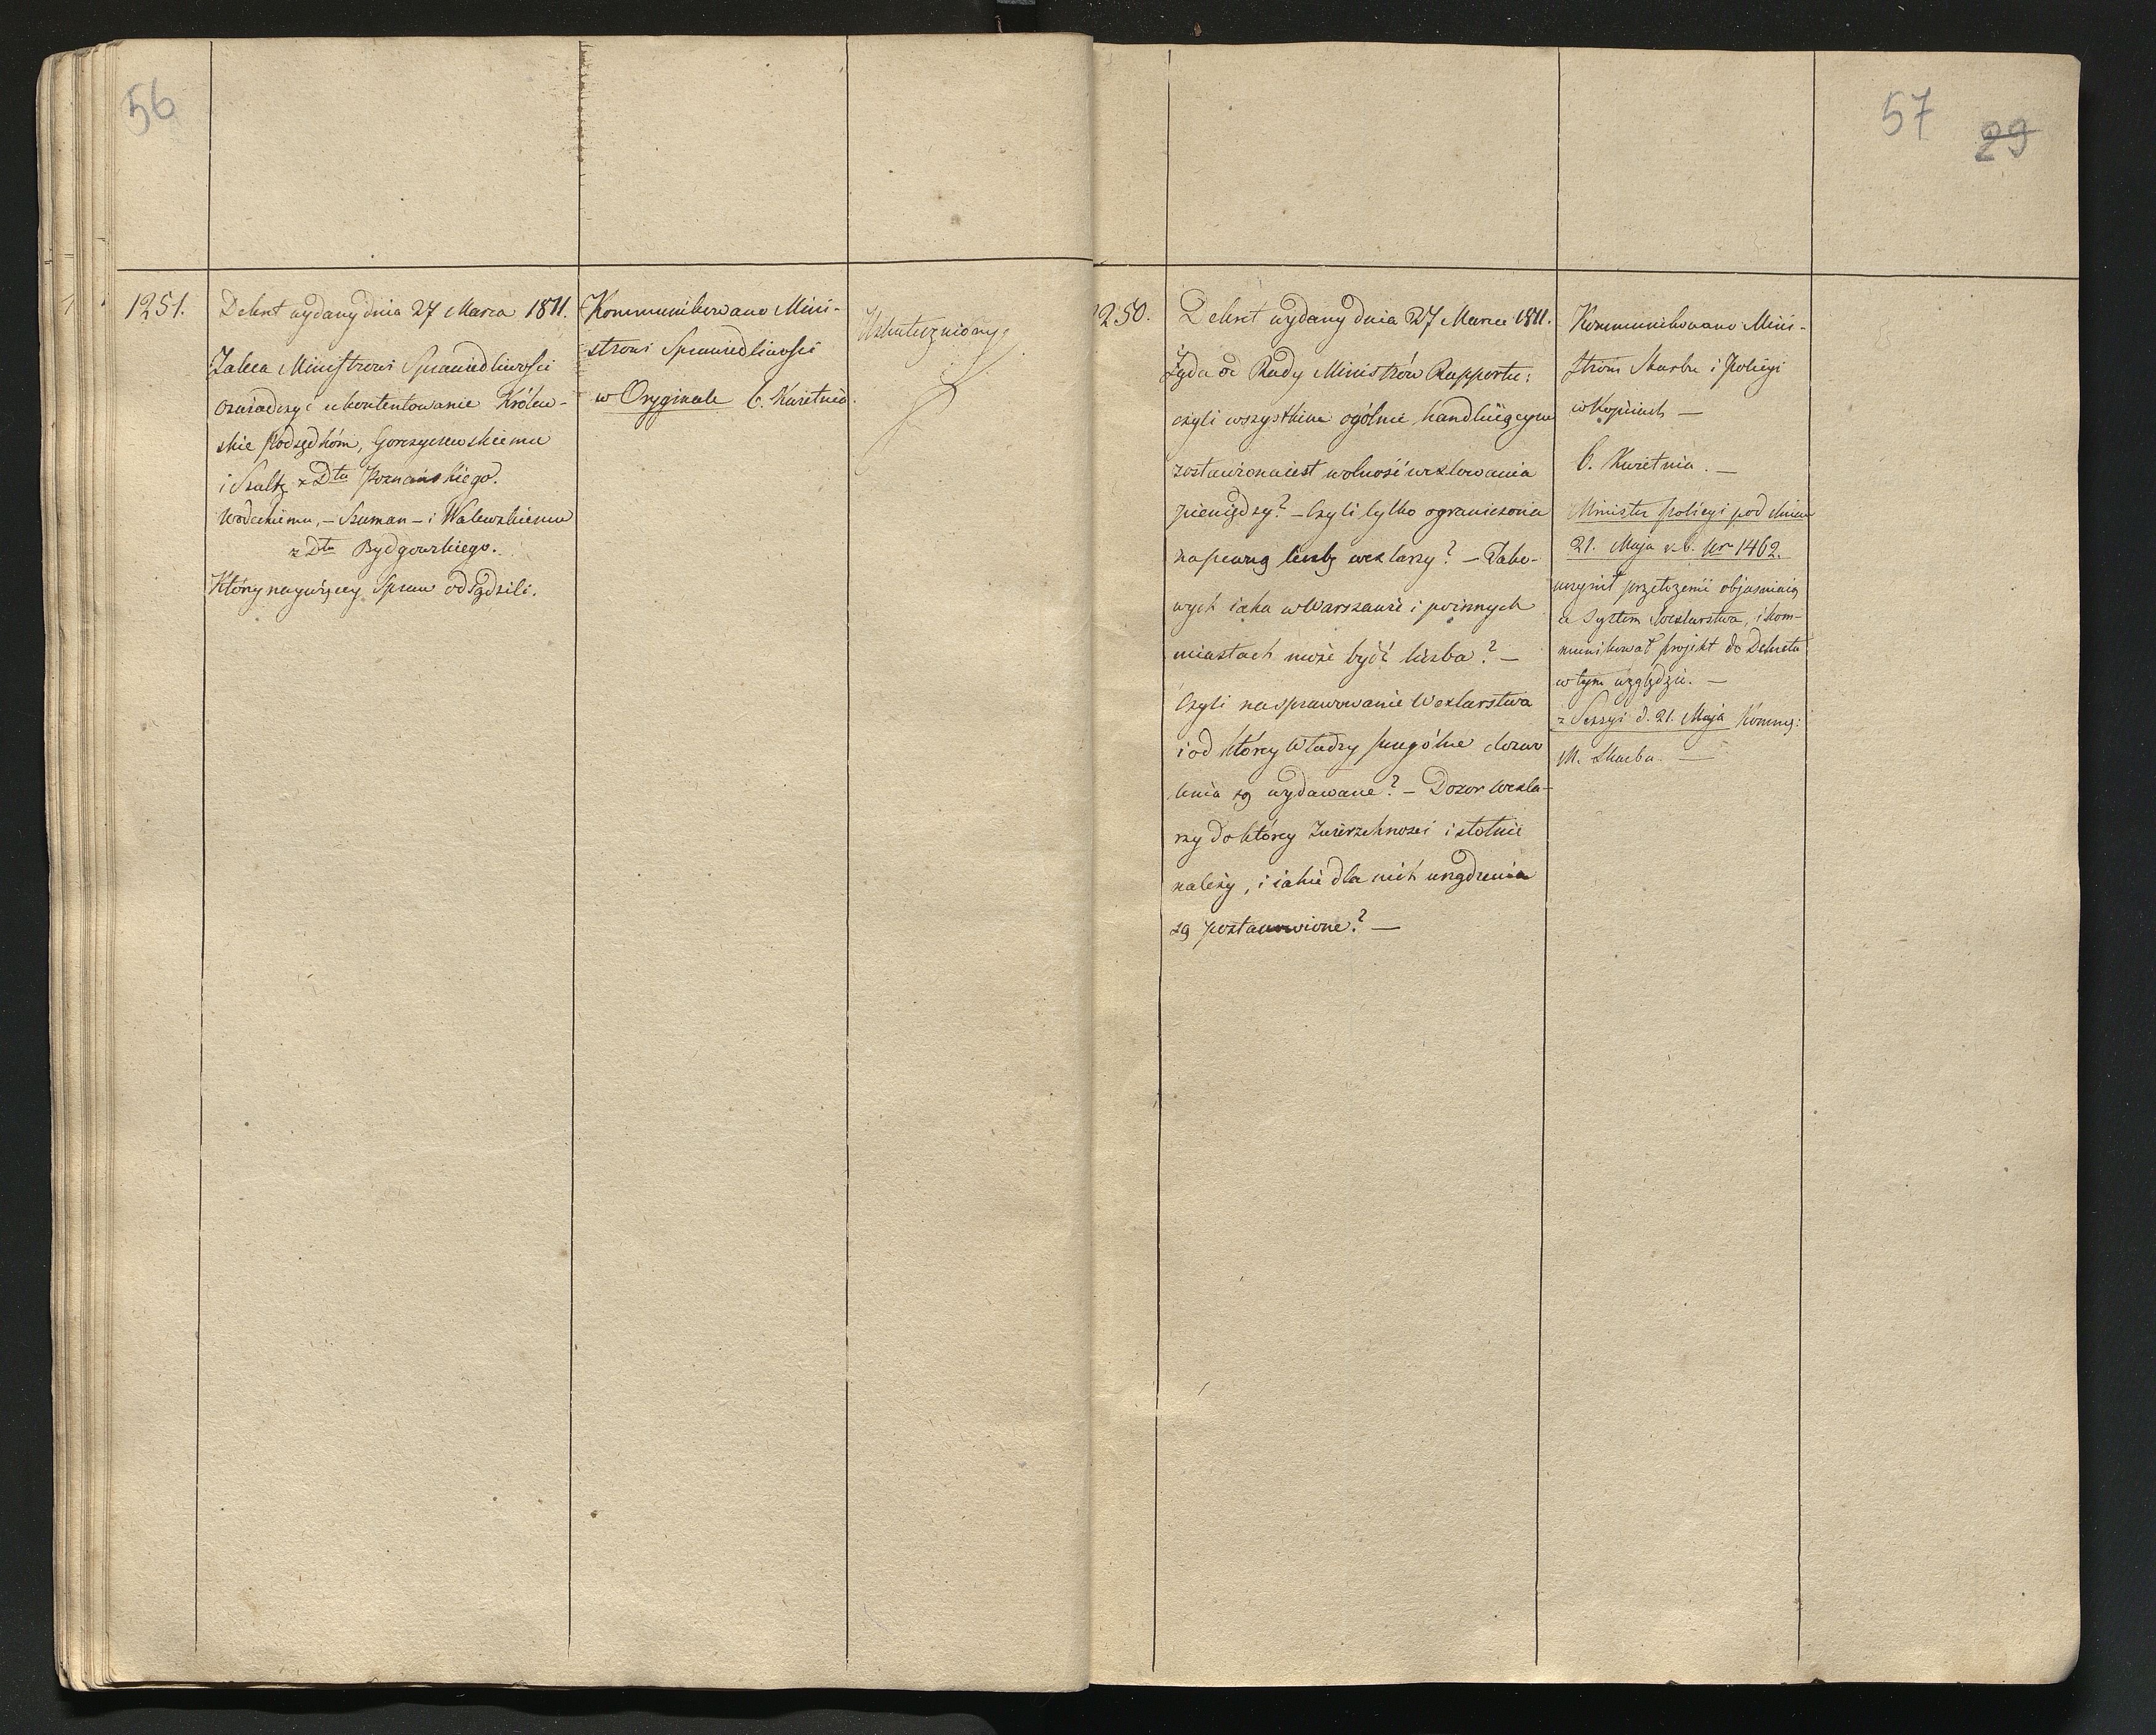 56
1251.
Dekret wydany dnia 27 Marca 1811.
Zaleca Ministrowi Sprawiedliwości
oświadczyć ukontentowanie Królew-
skie Podsędkóm, Gorczyczewskiemu
i Szultz z Dtu Poznańskiego.
Wodeckiemu, – Szuman – i Walewskiemu
z Dtu Bydgowskiego.
Którzy naywięcey Spraw odsądzili.
Kommunikowano Mini-
strowi Sprawiedliwości
w Oryginale 6. Kwietnia.
Uskuteczniony
57
29
1250.
Dekret wydany dnia 27 Marca 1811.
Żąda od Rady Ministrów Rapportu:
czyli wszystkim ogólnie handluiącym
zostawiona iest wolność wexlowania
pieniędzy? – Czyli tylko ograniczona
na pewną liczbę wexlarzy? – Tako-
wych iaka w Warszawie i po innych
miastach może być liczba? –
Czyli na sprawowanie Wexlarstwa
i od którey Władzy szczególne dozwo
lenia są wydawane? – Dozor Wexla-
rzy do którey Zwierzchności istotnie
należy, i iakie dla nich urządzenia
są postanowione? –
Kommunikowano Mini-
strom Skarbu i Policyi
w Kopiach –
6. Kwietnia. –
Minister Policyi pod dniem
21. Maja r. b. Nr 1462.
uczynił przełożenie objaśniaią
ce System Wexlarstwa, i kom-
munikował projekt do Dekretu
w tym względzie. –
z Sessyi d. 21. Maja Kommu:
M. Skarbu. –